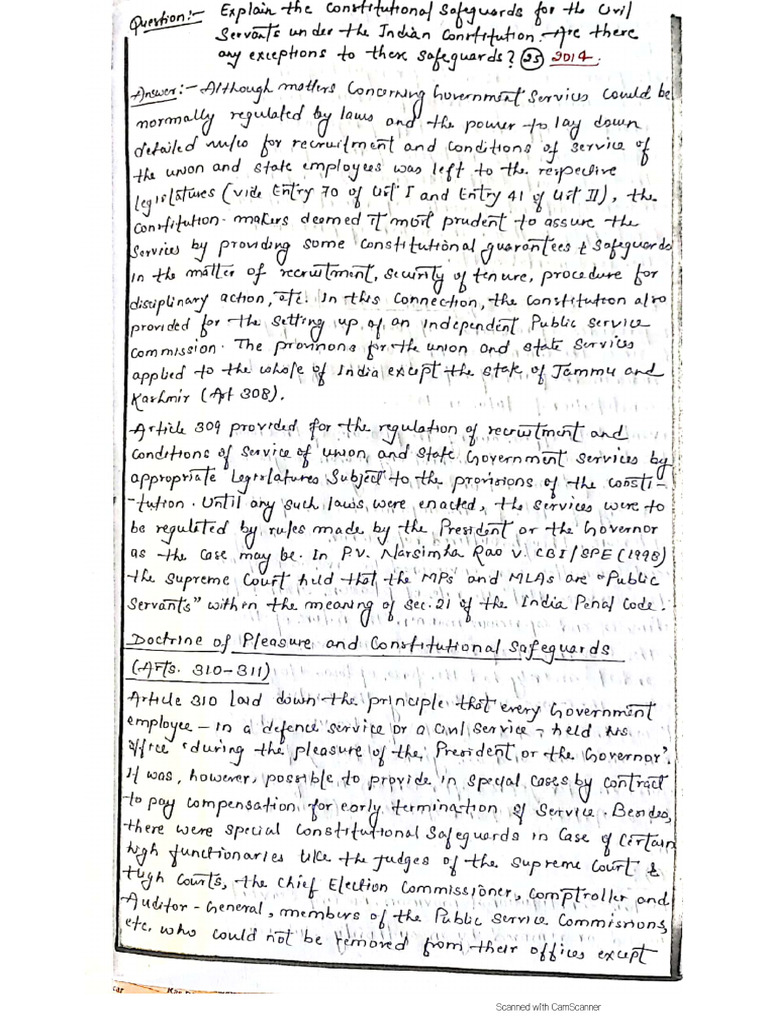 Question:- Explain the Constitutional Safeguards for the Civil
Servants under the Indian Constitution. Are there
any exceptions to these safeguards? (25) 2014.
Answer:- Although matters Concerning Government Services could be
normally regulated by laws and the power to lay down
detailed rules for recruitment and conditions of service of
the union and state employees was left to the respective
legislatures (vide Entry 70 of List I and Entry 41 of List II), the
Constitution-makers deemed it most prudent to assure the
Services by providing some constitutional guarantees & Safeguards
in the matter of recruitment, Security of tenure, procedure for
disciplinary action, etc. In this Connection, the Constitution also
provided for the setting up of an independent Public Service
Commission. The provisions for the union and state services
applied to the whole of India except the state of Jammu and
Kashmir (Art 308).
Article 309 provided for the regulation of recruitment and
Conditions of Service of union and State Government Services by
appropriate Legislatures Subject to the provisions of the consti-
-tution. Until any such laws were enacted, the services were to
be regulated by rules made by the President or the Governor
as the Case may be. In P.V. Narsimha Rao V. CBI/SPE (1998)
the Supreme Court held that the MPs and MLAs are "Public
Servants" within the meaning of Sec. 21 of the India Penal Code.
Doctrine of Pleasure and Constitutional Safeguards
(Arts. 310-311)
Article 310 laid down the principle that every Government
employee - in a defence service or a civil service - held his
office 'during the pleasure of the President or the Governor'.
It was, however, possible to provide in special cases by contract
to pay compensation for early termination of Service. Besides,
there were special Constitutional Safeguards in Case of Certain
high functionaries like the Judges of the Supreme Court &
High Courts, the Chief Election Commissioner, Comptroller and
Auditor-General, members of the Public Service Commissions,
etc. who could not be removed from their offices except
Scanned with CamScanner